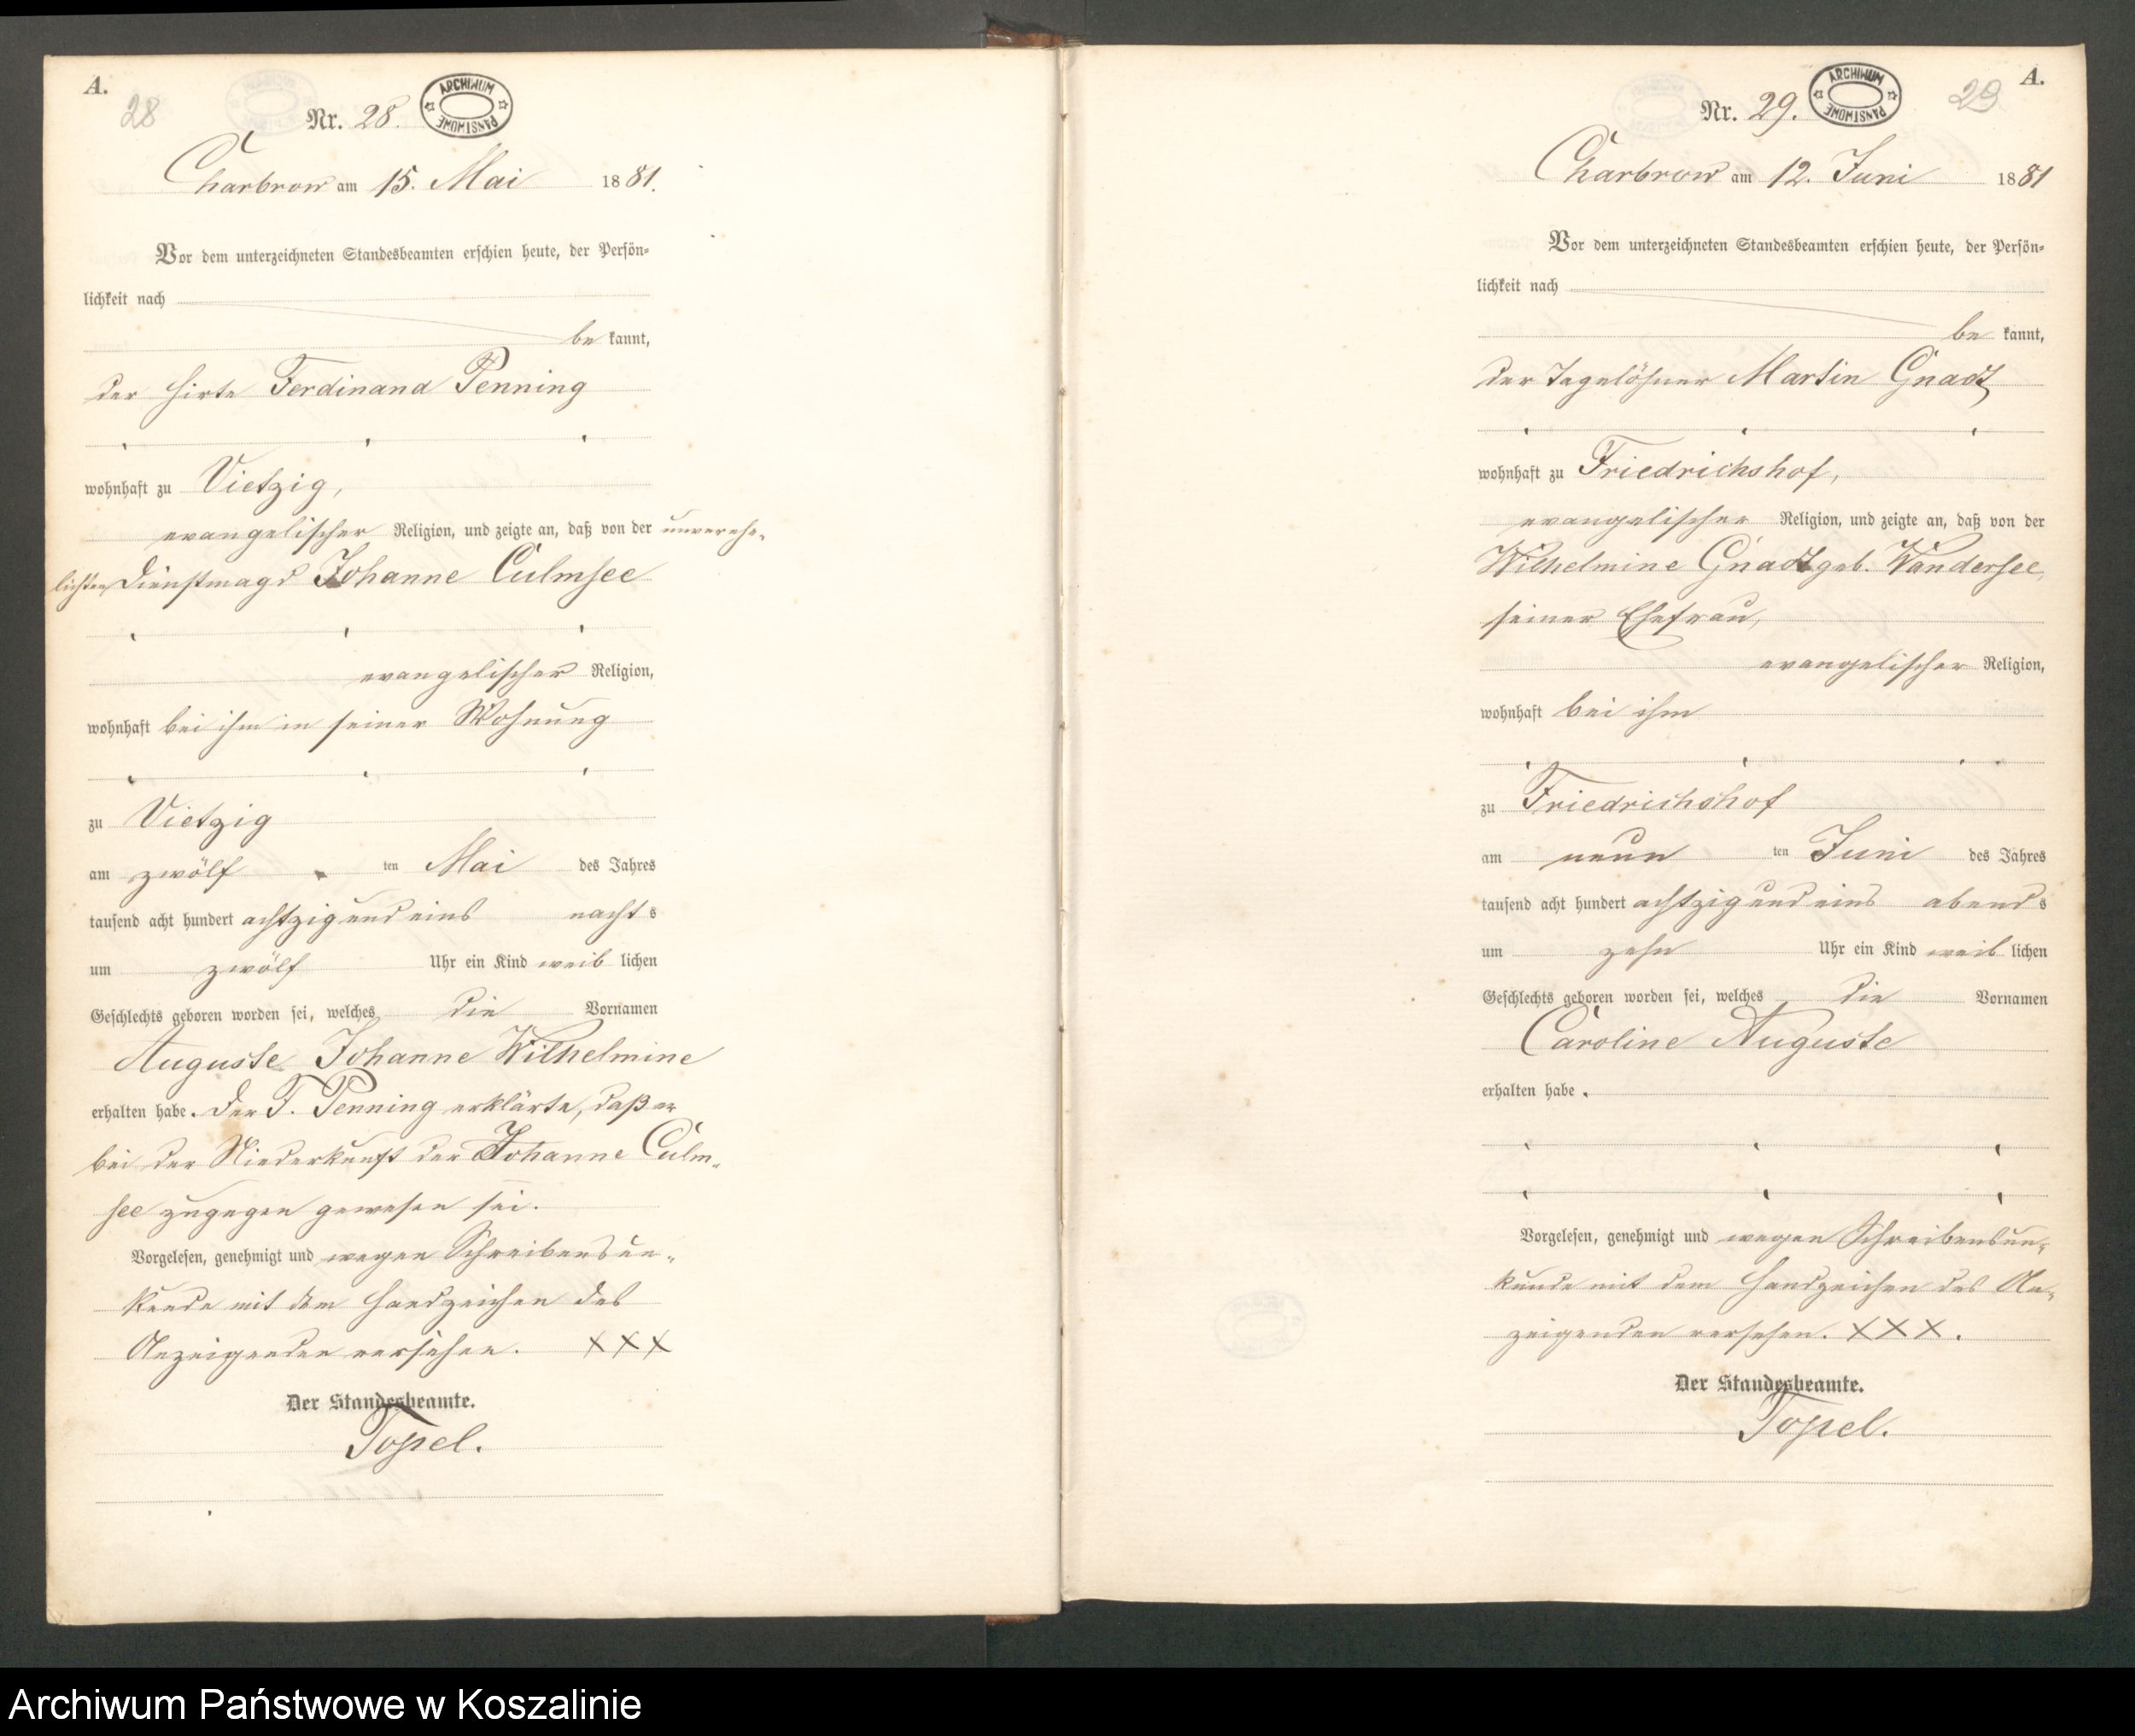 A.
28
Nr. 28.
ARCHIWUM PAŃSTWOWE
Charbrow am 15. Mai 1881.
Vor dem unterzeichneten Standesbeamten erschien heute, der Persön-
lichkeit nach
be kannt,
der Hirte Ferdinand Penning
wohnhaft zu Vietzig,
evangelischer Religion, und zeigte an, daß von der unverehe-
lichten Dienstmagd Johanne Culmsee
evangelischer Religion,
wohnhaft bei ihm in seiner Wohnung
zu Vietzig
am zwölf ten Mai des Jahres
tausend acht hundert achtzig und eins nachts
um zwölf Uhr ein Kind weib lichen
Geschlechts geboren worden sei, welches die Vornamen
Auguste Johanne Wilhelmine
erhalten habe. Der F. Penning erklärte, daß er
bei der Niederkunft der Johanne Culm-
see zugegen gewesen sei.
Vorgelesen, genehmigt und wegen Schreibensun-
kunde mit dem Handzeichen des
Anzeigenden versehen. XXX
Der Standesbeamte.
Topel.
A.
29
Nr. 29.
ARCHIWUM PAŃSTWOWE
Charbrow am 12. Juni 1881
Vor dem unterzeichneten Standesbeamten erschien heute, der Persön-
lichkeit nach
be kannt,
der Tagelöhner Martin Gnadt
wohnhaft zu Friedrichshof,
evangelischer Religion, und zeigte an, daß von der
Wilhelmine Gnadt geb. Wandersee,
seiner Ehefrau,
evangelischer Religion,
wohnhaft bei ihm
zu Friedrichshof
am neun ten Juni des Jahres
tausend acht hundert achtzig und eins abends
um zehn Uhr ein Kind weib lichen
Geschlechts geboren worden sei, welches die Vornamen
Caroline Auguste
erhalten habe.
Vorgelesen, genehmigt und wegen Schreibensun-
kunde mit dem Handzeichen des An-
zeigenden versehen. XXX.
Der Standesbeamte.
Topel.
Archiwum Państwowe w Koszalinie